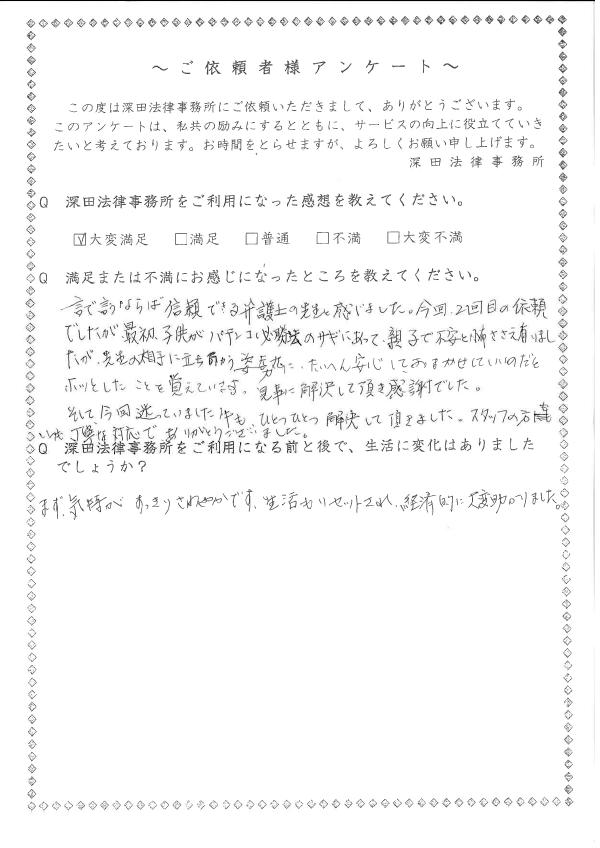 ～ご依頼者様アンケート～
この度は深田法律事務所にご依頼いただきまして、ありがとうございます。
このアンケートは、私共の励みにするとともに、サービスの向上に役立てていき
たいと考えております。お時間をとらせますが、よろしくお願い申し上げます。
深田法律事務所
Q 深田法律事務所をご利用になった感想を教えてください。
☑大変満足 □満足 □普通 □不満 □大変不満
Q 満足または不満にお感じになったところを教えてください。
言で言うならば信頼できる弁護士の先生と感じました。今回、2回目の依頼
でしたが最初、子供がパチンコ必勝法のサギにあって、親子で不安と怖ささえ有りまし
たが、先生の相手に立ち向かう姿勢に、たいへん安心しておまかせしていいのだと
ホッとしたことを覚えています。見事に解決して頂き感謝でした。
そして今回迷っていました件も、ひとつひとつ解決して頂きました。スタッフの方達
いつも丁寧な対応でありがとうございました。
Q 深田法律事務所をご利用になる前と後で、生活に変化はありました
でしょうか？
まず、気持がすっきりさわやかです、生活もリセットされ、経済的に大変助かりました。